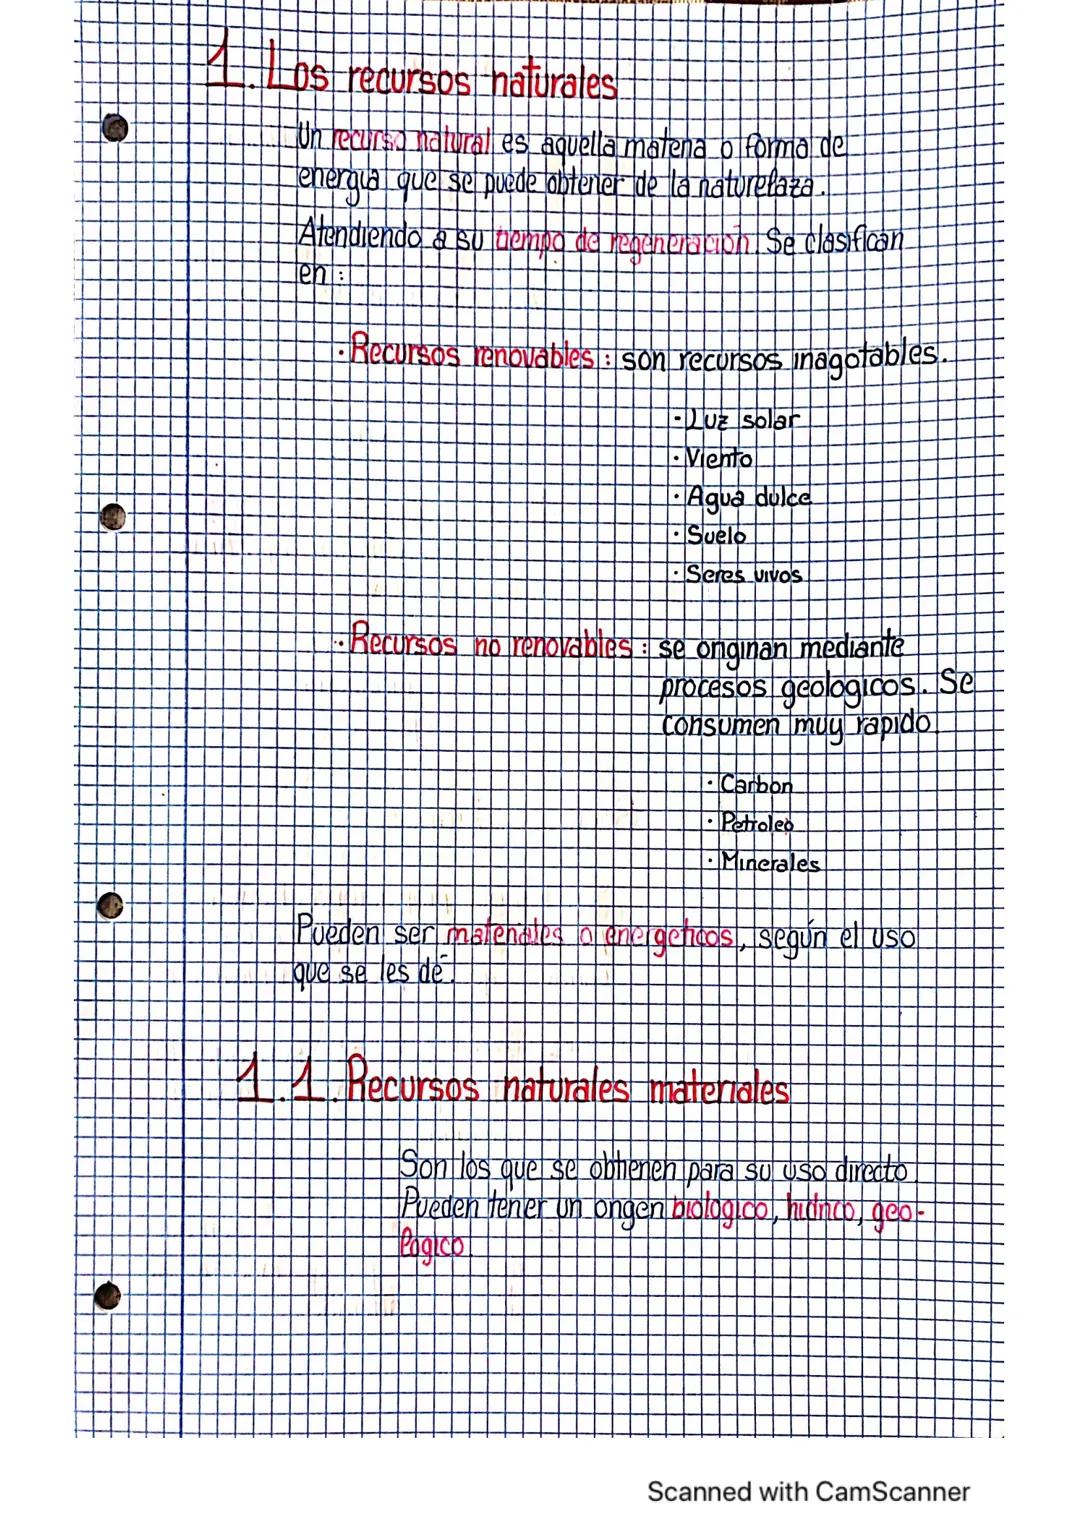 1. Los recursos naturales
Un recurso natural es aquella materia o forma de
energía que se puede obtener de la naturelaza.
Atendiendo a su tiempo de regeneración. Se clasifican
en :
· Recursos renovables : son recursos inagotables.
· Luz solar
· Viento
· Agua dulce
· Suelo
· Seres vivos
· Recursos no renovables : se originan mediante
procesos geologicos. Se
consumen muy rapido.
· Carbon
· Petroleo
· Minerales
Pueden ser materiales o energeticos, según el uso
que se les dé.
1.1. Recursos naturales materiales
Son los que se obtienen para su uso directo.
Pueden tener un origen biologico, hidrico, geo-
logico
Scanned with CamScanner